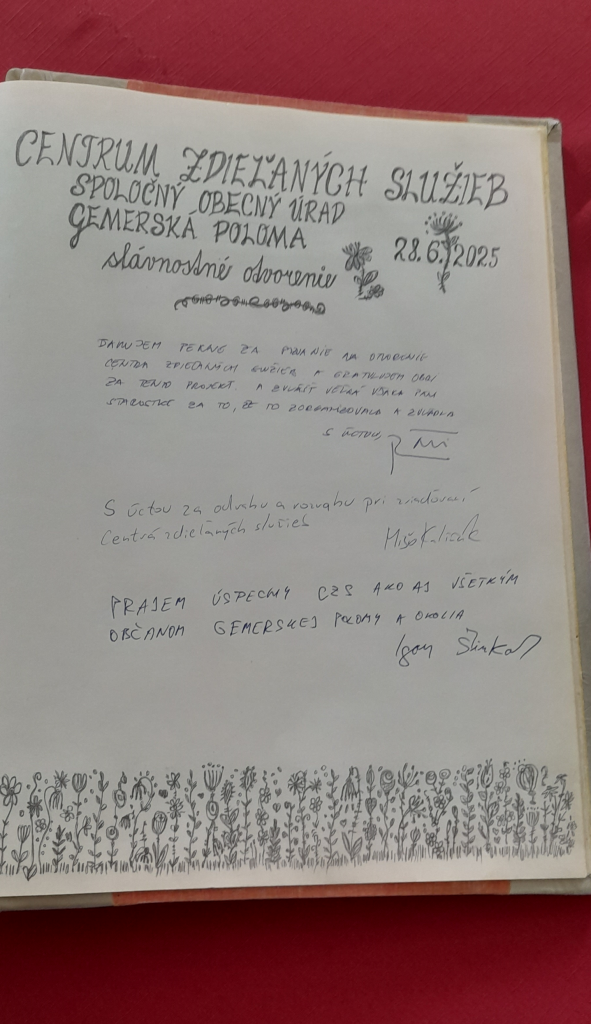 CENTRUM ZDIEĽANÝCH SLUŽIEB
SPOLOČNÝ OBECNÝ ÚRAD
GEMERSKÁ POLOMA
28.6.2025
slávnostné otvorenie
ĎAKUJEM PEKNE ZA POZVANIE NA OTVORENIE
CENTRA ZDIEĽANÝCH SLUŽIEB A GRATULUJEM OBCI
ZA TENTO PROJEKT. A ZVLÁŠŤ VEĽKÁ VĎAKA PANI
STAROSTKE ZA TO, ŽE TO ZORGANIZOVALA A ZVLÁDLA
S ÚCTOU,
S úctou za odvahu a rozvahu pri zriaďovaní
Centra zdieľaných služieb
PRAJEM ÚSPECHY CZS AKO AJ VŠETKÝM
OBČANOM GEMERSKEJ POLOMY A OKOLIA
Igor